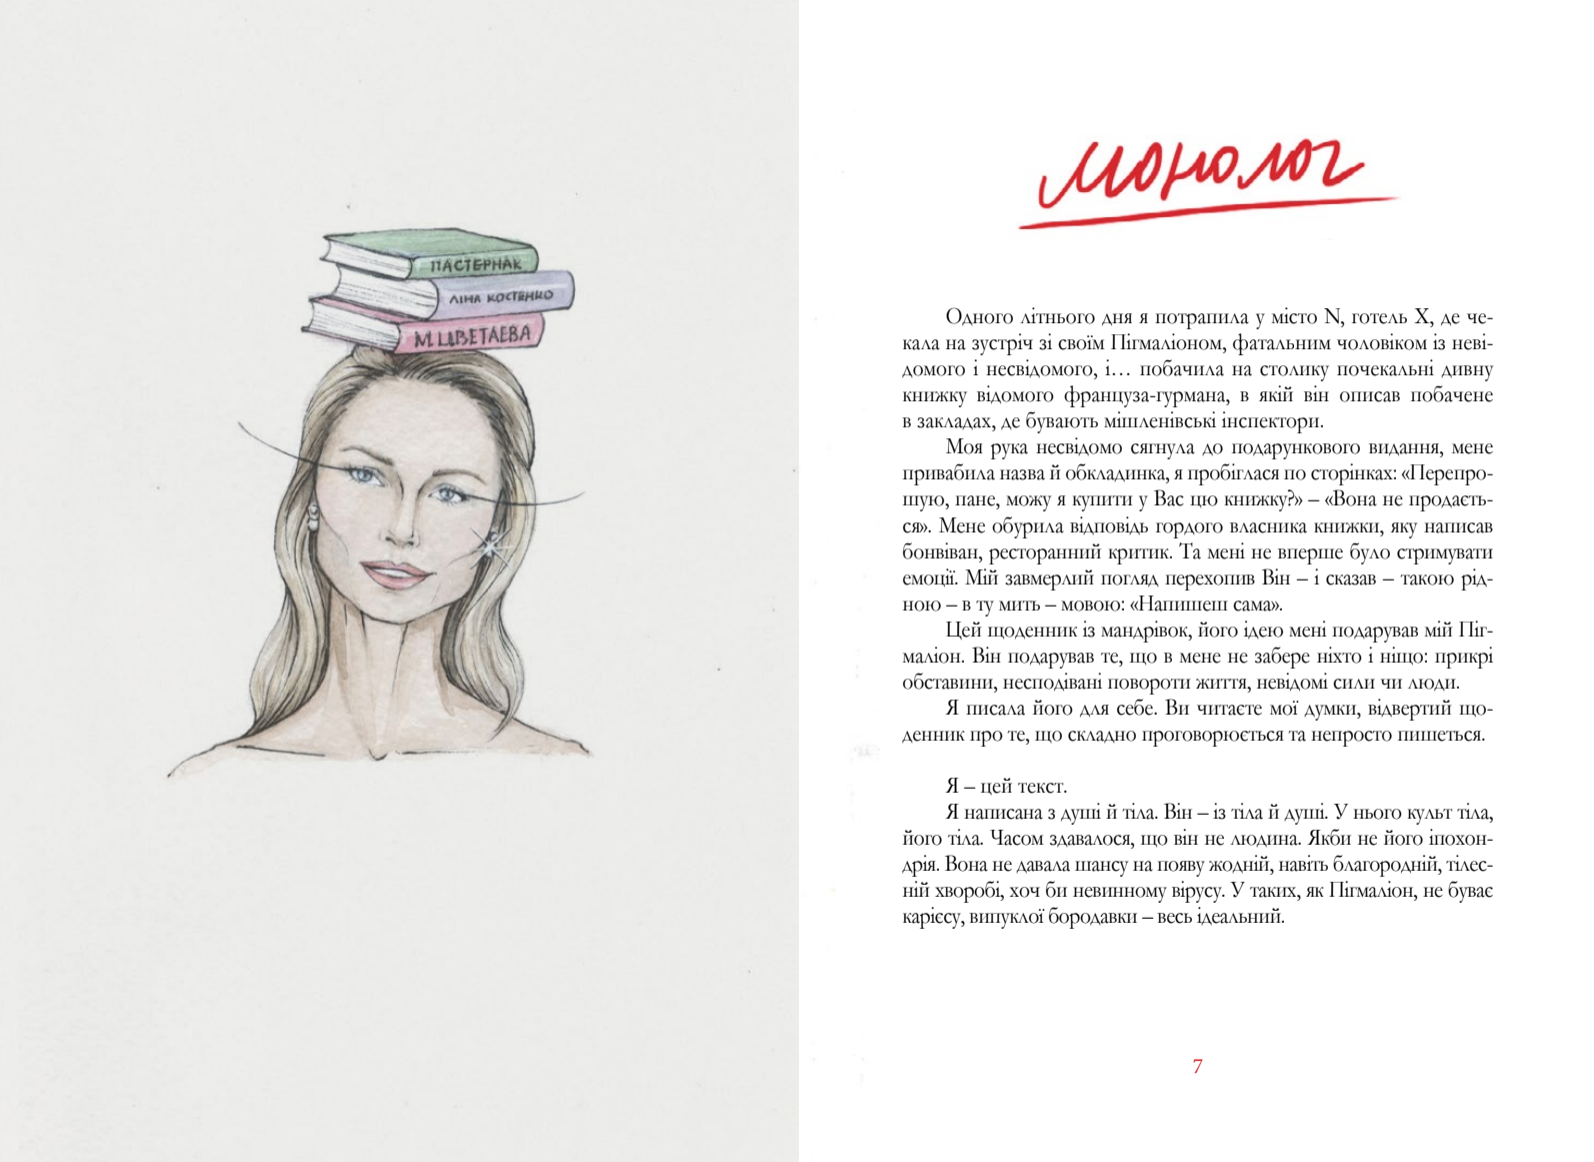 ПАСТЕРНАК
ЛІНА КОСТЕНКО
М. ЦВЕТАЕВА
монолог
Одного літнього дня я потрапила у місто N, готель X, де че-
кала на зустріч зі своїм Пігмаліоном, фатальним чоловіком із неві-
домого і несвідомого, і… побачила на столику почекальні дивну
книжку відомого француза-гурмана, в якій він описав побачене
в закладах, де бувають мішленівські інспектори.
Моя рука несвідомо сягнула до подарункового видання, мене
привабила назва й обкладинка, я пробіглася по сторінках: «Перепро-
шую, пане, можу я купити у Вас цю книжку?» – «Вона не продаєть-
ся». Мене обурила відповідь гордого власника книжки, яку написав
бонвіван, ресторанний критик. Та мені не вперше було стримувати
емоції. Мій завмерлий погляд перехопив Він – і сказав – такою рід-
ною – в ту мить – мовою: «Напишеш сама».
Цей щоденник із мандрівок, його ідею мені подарував мій Піг-
маліон. Він подарував те, що в мене не забере ніхто і ніщо: прикрі
обставини, несподівані повороти життя, невідомі сили чи люди.
Я писала його для себе. Ви читаєте мої думки, відвертий що-
денник про те, що складно проговорюється та непросто пишеться.
Я – цей текст.
Я написана з душі й тіла. Він – із тіла й душі. У нього культ тіла,
його тіла. Часом здавалося, що він не людина. Якби не його іпохон-
дрія. Вона не давала шансу на появу жодній, навіть благородній, тілес-
ній хворобі, хоч би невинному вірусу. У таких, як Пігмаліон, не буває
карієсу, випуклої бородавки – весь ідеальний.
7